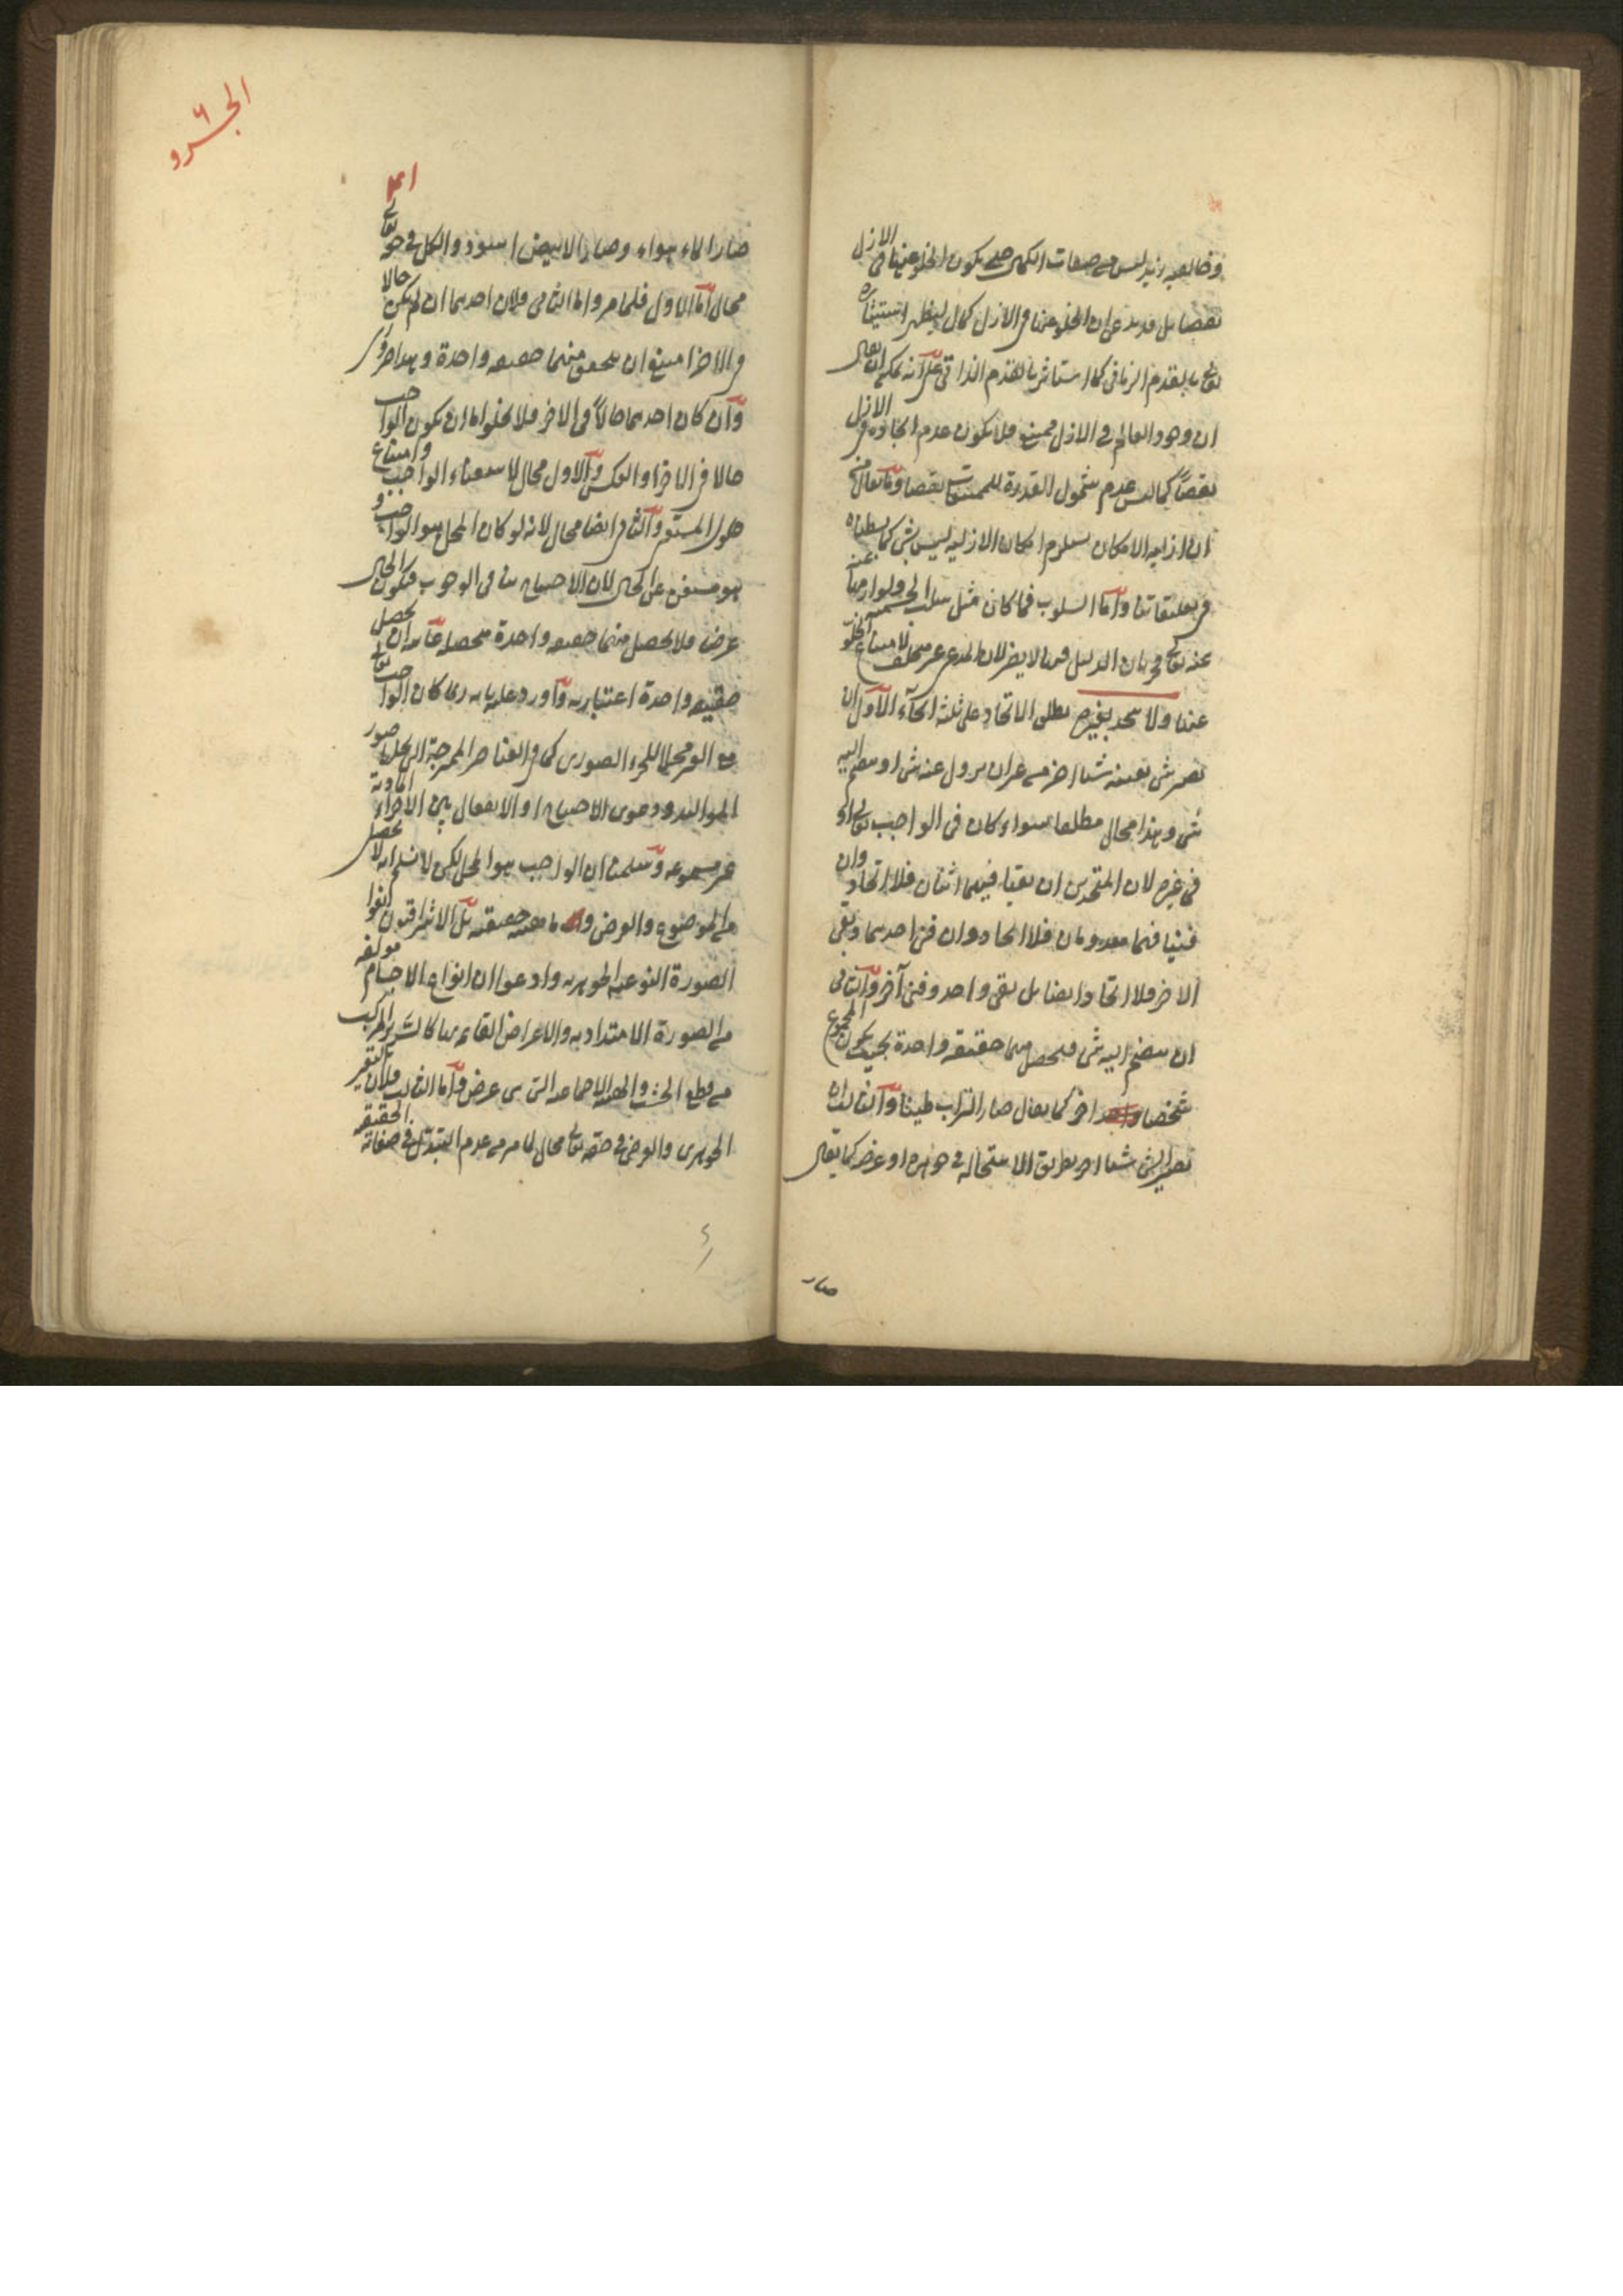 وخالقية زيد ليس من صفات الكمال حتى يكون الخلو عنها في الازل
نقصا بل قد يدعى ان الخلو عنها في الازل كمال ليظهر استيثاره
تع بالقدم الزماني كما استاثر بالقدم الذاتي على انه يمكن ان يقال
ان وجود العالم في الازل ممتنع فلا يكون عدم ايجاده في الازل
نقصاً كما ليس عدم شمول القدرة للممتنعات نقصا وما يقال من
ان ازلية الامكان يستلزم امكان الازلية ليس بشئ كما بسطناه
في تعليقاتنا واما السلوب فما كان مثل سلب الجسمية ولوازمها عنه
عنه تعالى فجريان الدليل فيها لا يضر لان المدعى غير متخلف لامتناع الخلو
عنها ولا يتحد بغيره يطلق الاتحاد على ثلثة انحاء الاول ان
يصير شئ بعينه شيئا اخر من غير ان يزول عنه شئ او ينضم اليه
شئ وهذا محال مطلقا سواء كان في الواجب تعالى او
في غيره لان المتحدين ان بقيا فهما اثنان فلا اتحاد وان
فنيا فهما معدومان فلا اتحاد وان فنى احدهما وبقى
الاخر فلا اتحاد ايضا بل بقى واحد وفنى آخر والثاني
ان ينضم اليه شئ فيحصل منهما حقيقة واحدة بحيث يكون المجموع
شخصا واحدا اخر كما يقال صار التراب طينا والثالث ان
يصير الشئ شيئا اخر بطريق الاستحالة في جوهره او عرضه كما يقال
صار
الجزو
٦
٤١
صار الماء هواء وصار الابيض اسود والكل في حقه تعالى
محال اما الاول فلما مر واما الثاني فلان احدهما ان لم يكن حالا
في الاخر امتنع ان يتحقق منهما حقيقة واحدة وهذا ضروري
وان كان احدهما حالاً في الاخر فلا يخلو اما ان يكون الواجب
حالا في الاخر او العكس والاول محال لاستغناء الواجب وامتناع
حلول المستغني والثاني ايضا محال لانه لو كان المحل هو الواجب و
هو مستغن عن الحال لان الاحتياج ينافي الوجوب فيكون الحال
عرضا فلا يحصل منهما حقيقة واحدة متحصلة غايته ان يحصل
حقيقة واحدة اعتبارية واورد عليه بانه ربما كان الواجب تعالى
مع الغير محلا للجزء الصوري كما في العناصر الممتزجة التي يحلها صور
المواليد ودعوى الاحتياج او الانفعال بين الاجزاء المادية
غير مسموعة ولو سلمنا ان الواجب هو المحل لكن لا نسلم انه لا يحصل
من الموضوع والعرض ماهية حقيقية بل الاشراقيون انفوا
الصورة النوعية الجوهرية وادعوا ان انواع الاجسام مولفة
من الصورة الامتدادية والاعراض القائمة بها كالسرير المركب
من قطع الخشب والهيئة الاجتماعية التي هي عرض واما الثالث فلان التغير
الجوهري والعرضي في حقه تعالى محال لما مر من عدم التبدل في صفاته الحقيقية